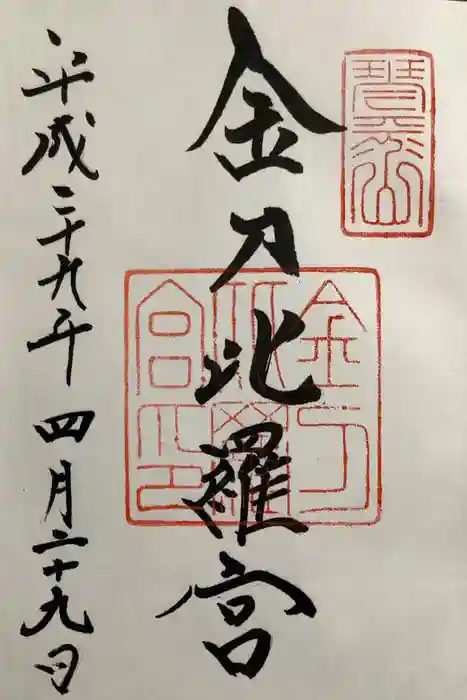 琴平山
金刀比羅宮
金刀比羅宮印
平成二十九年 四月二十九日